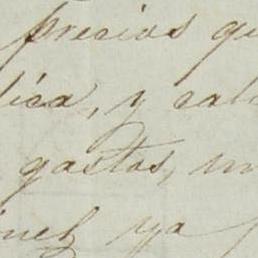 precios qu
lica, y cali
gastos, m
inez ya